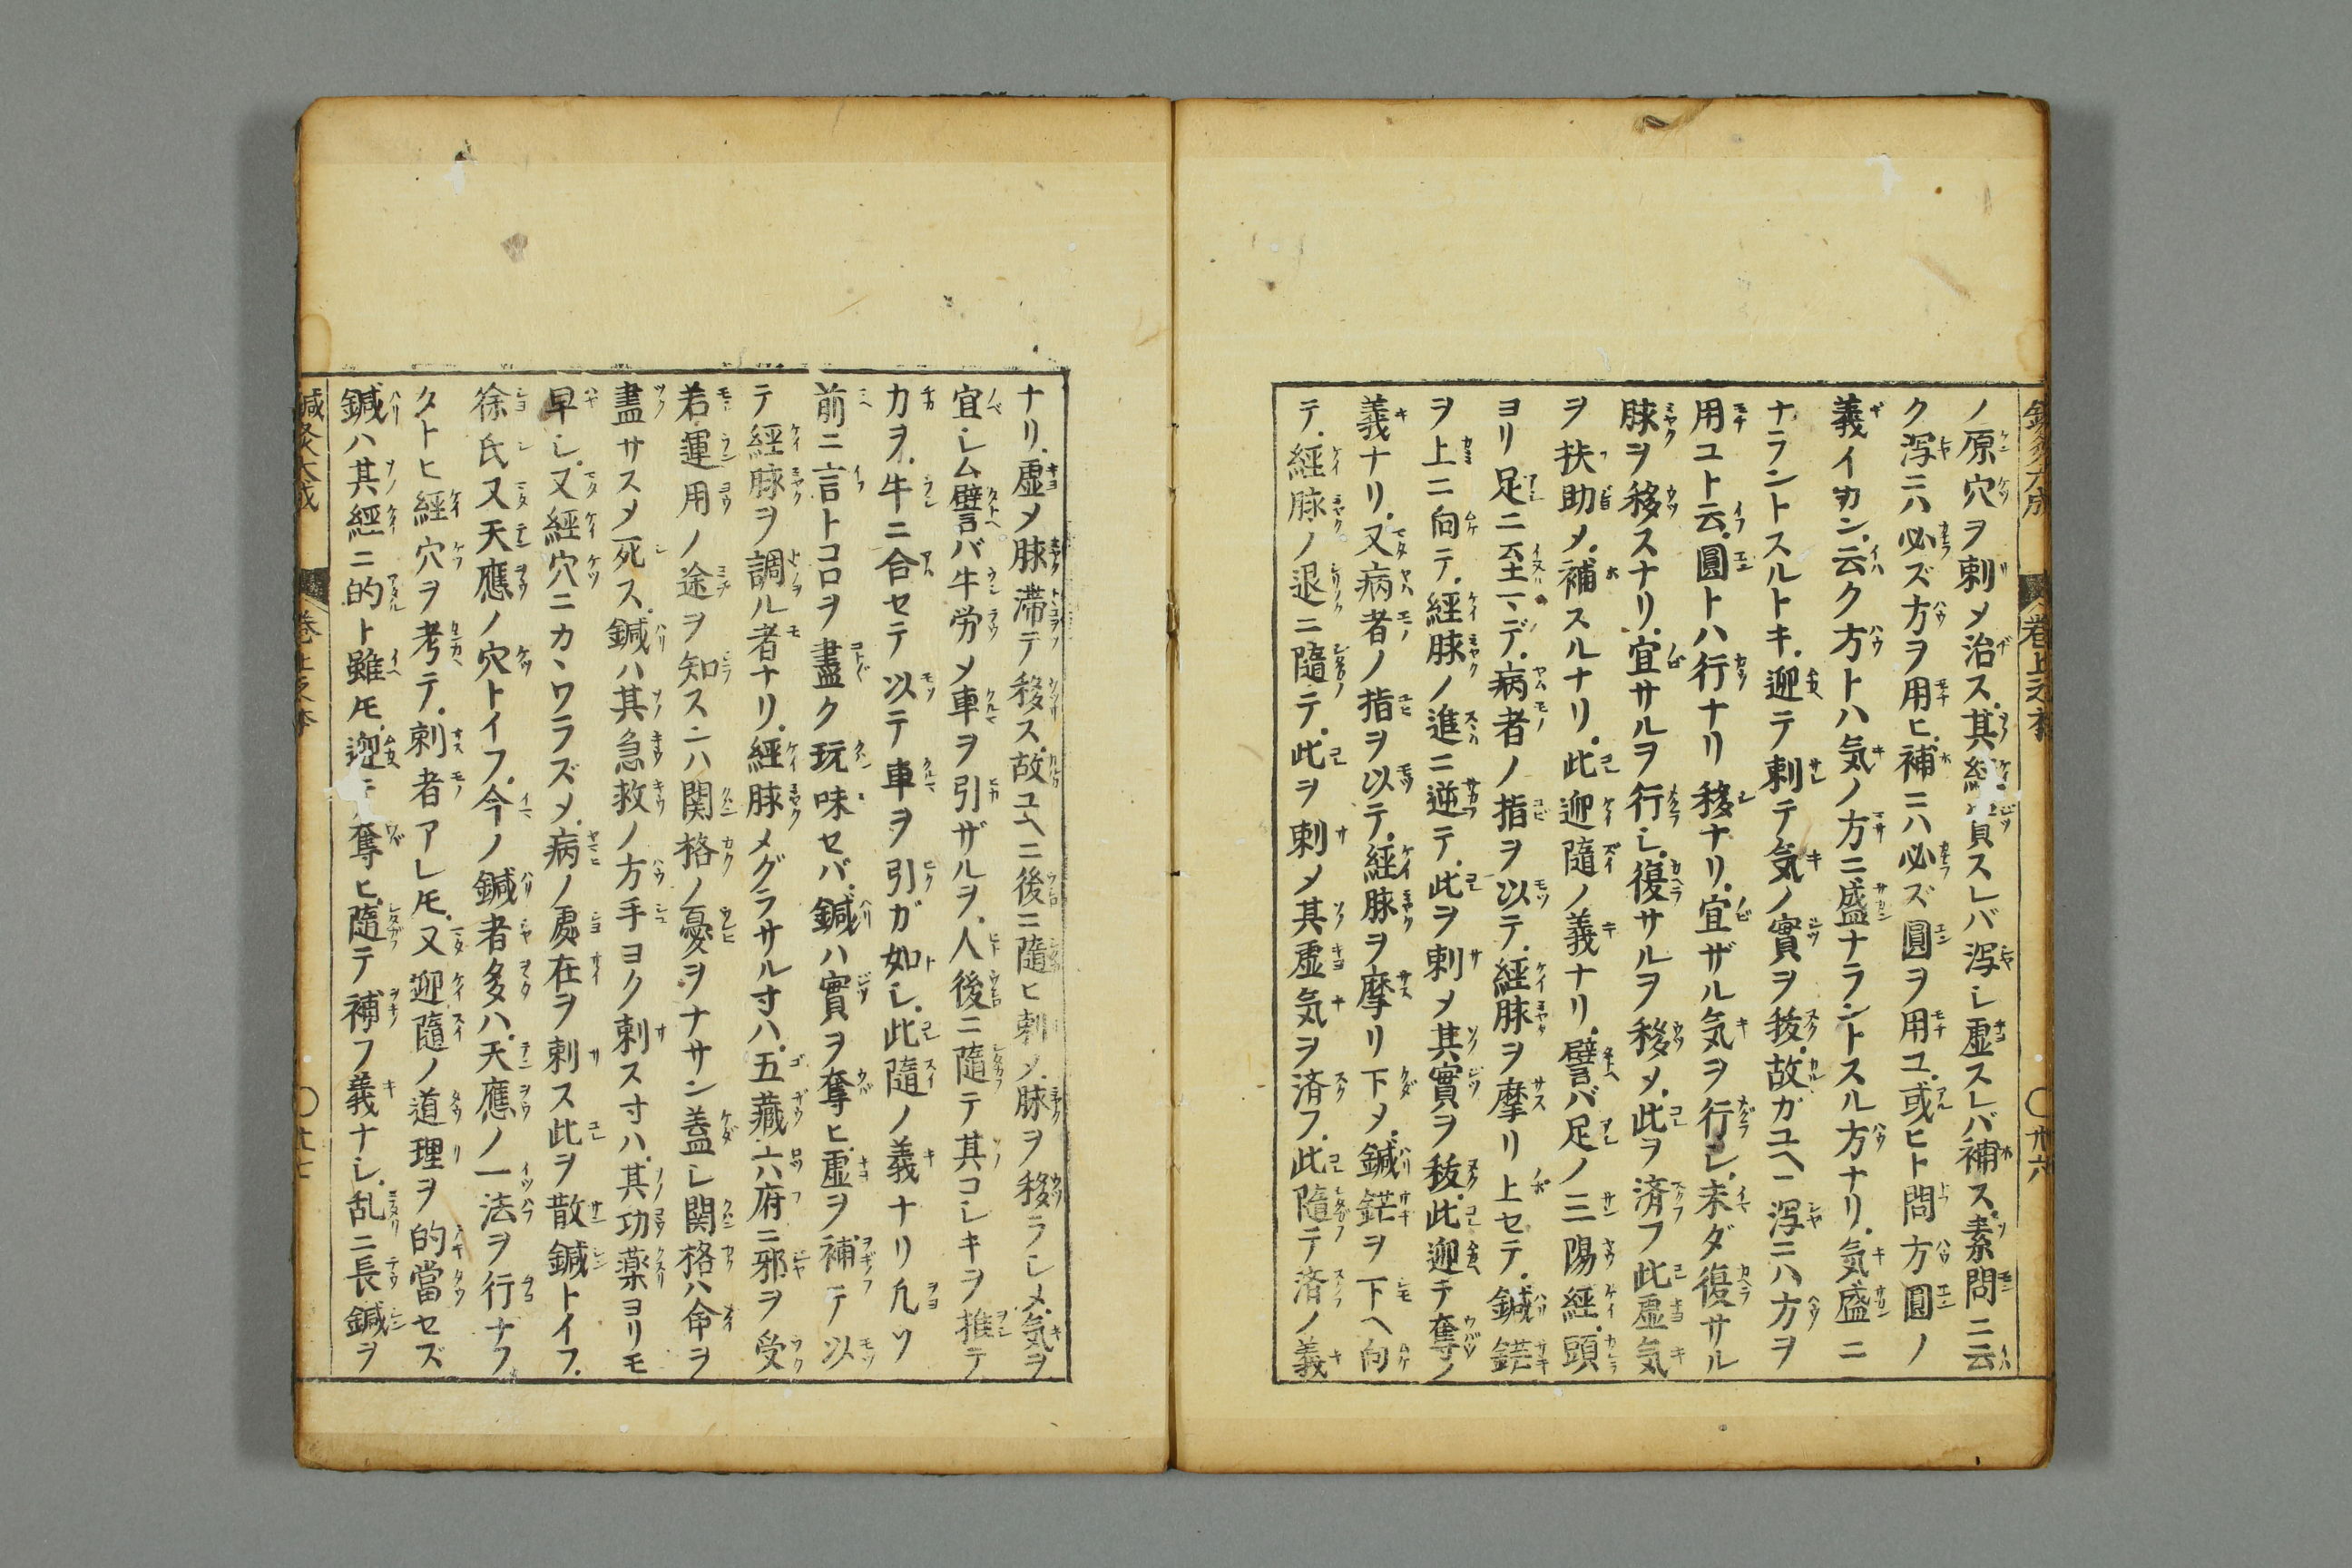 巻上之本
〇廿六
ノ原穴ヲ刺メ治ス.其經實スレバ瀉シ虚スレバ補ス.素問ニ云
ク瀉ニハ必ズ方ヲ用ヒ.補ニハ必ズ圓ヲ用ユ.或ヒト問方圓ノ
義イカン.云ク方トハ気ノ方ニ盛ナラントスル方ナリ.気盛ニ
ナラントスルトキ.迎テ刺テ気ノ實ヲ抜.故ガユヘニ瀉ニハ方ヲ
用ユト云.圓トハ行ナリ移ナリ.宜ザル気ヲ行シ.未ダ復サル
脉ヲ移スナリ.宜サルヲ行シ.復サルヲ移メ.此ヲ済フ此虚気
ヲ扶助メ.補スルナリ.此迎隨ノ義ナリ.譬バ足ノ三陽經.頭
ヨリ足ニ至マデ.病者ノ指ヲ以テ.經脉ヲ摩リ上セテ.鍼鋩
ヲ上ニ向テ.經脉ノ進ニ逆テ.此ヲ刺メ其實ヲ抜.此迎テ奪ノ
義ナリ.又病者ノ指ヲ以テ.經脉ヲ摩リ下メ.鍼鋩ヲ下ヘ向
テ.經脉ノ退ニ隨テ.此ヲ刺メ其虚気ヲ済フ.此隨テ済ノ義
ナリ.虚メ脉滞テ移ス.故ユヘニ後ニ隨ヒ刺メ.脉ヲ移ラシメ.気ヲ
宜シム譬バ牛労メ車ヲ引ザルヲ.人後ニ隨テ其コレキヲ推テ
力ヲ.牛ニ合セテ以テ車ヲ引ガ如シ.此隨ノ義ナリ凡ソ
前ニ言トコロヲ盡ク玩味セバ.鍼ハ實ヲ奪ヒ.虚ヲ補テ以
テ經脉ヲ調ル者ナリ.經脉メグラサル寸ハ.五藏六府ニ邪ヲ受
若運用ノ途ヲ知スニハ関格ノ憂ヲナサン蓋シ関格ハ命ヲ
盡サスメ死ス.鍼ハ其急救ノ方手ヨク刺ス寸ハ.其功薬ヨリモ
早シ.又經穴ニカヽワラズメ.病ノ處在ヲ刺ス此ヲ散鍼トイフ.
徐氏又天應ノ穴トイフ.今ノ鍼者多ハ.天應ノ一法ヲ行ナフ
タトヒ經穴ヲ考テ.刺者アレ𪜈.又迎隨ノ道理ヲ的當セズ
鍼ハ其經ニ的ト雖𪜈.迎テ奪ヒ.隨テ補フ義ナシ.乱ニ長鍼ヲ
鍼灸大成
巻上之本